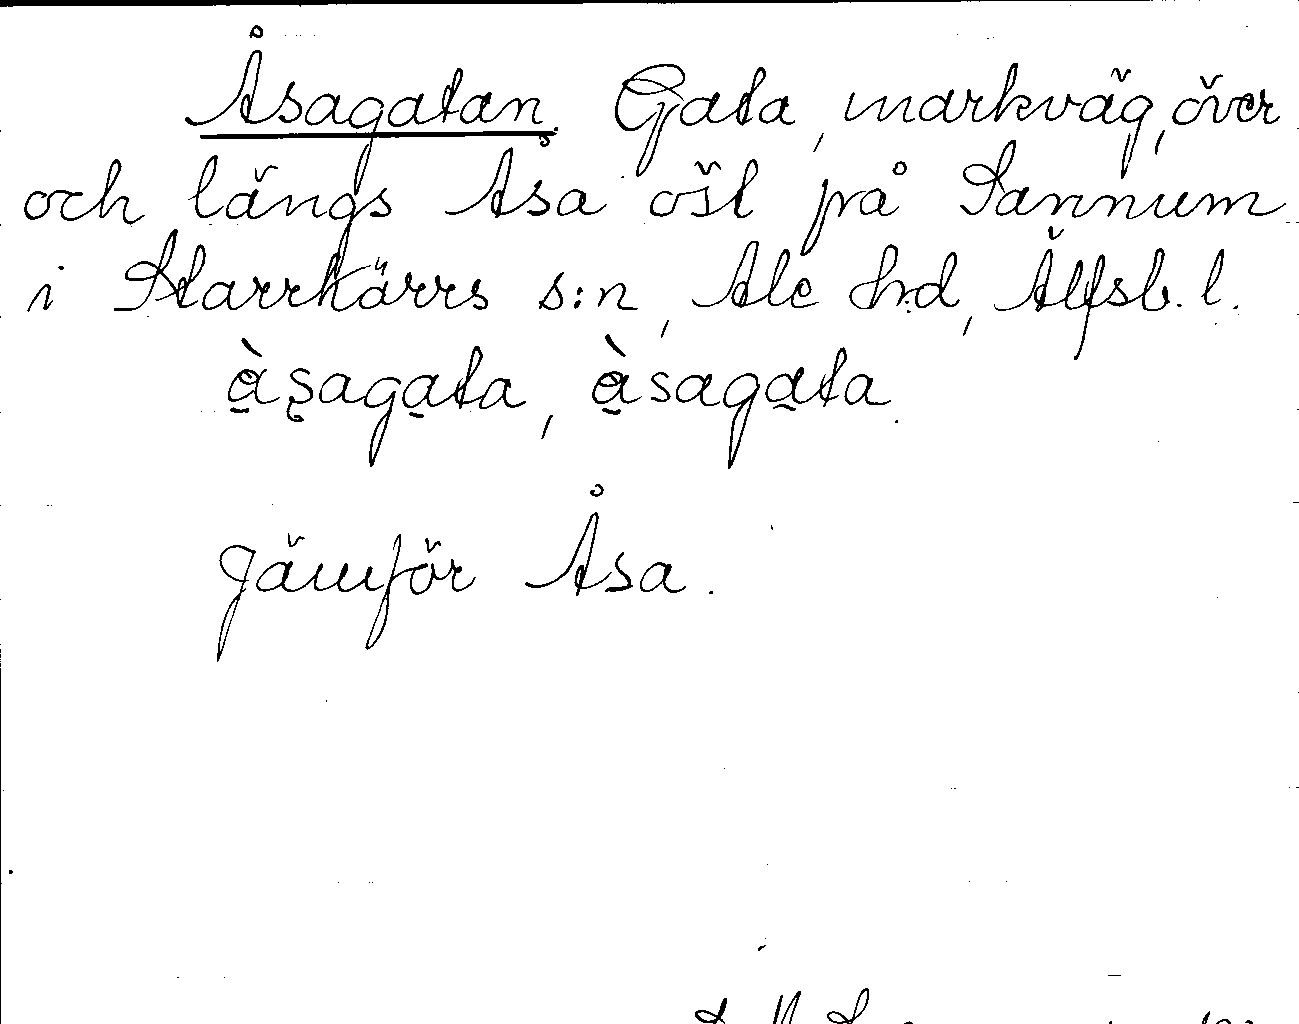 Åsagatan. Gata, markväg, över
och längs Åsa öst på Sannum
i Starrkärrs s:n, Ale hd, Älfsb. l.
ằ̱s̨aga̱ta, ằ̱saga̱ta.
Jämför Åsa.